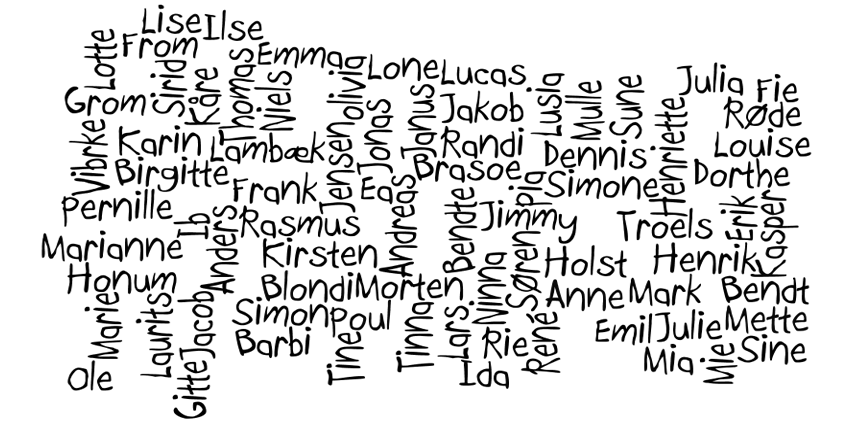 Lise
Ilse
From
Lotte
Emma
olivia
Lone
Lucas
Sirid
Kåre
Thomas
Niels
Grom
Jakob
Lusia
Mulle
Sune
Julia
Fie
Røde
Jonas
Janus
Vibrke
Karin
Lambæk
Jensen
Randi
Dennis
Henriette
Louise
Birgitte
Frank
Ea
Brasoe
Pia
Simone
Dorthe
Pernille
Ib
Anders
Rasmus
Andreas
Bendte
Jimmy
Troels
Erik
Kasper
Marianne
Kirsten
Søren
Holst
Henrik
Honum
Blondi
Morten
Ninna
Anne
Mark
Bendt
Marie
Laurits
Jacob
Simon
Poul
Tinna
Lars
René
Emil
Julie
Mette
Barbi
Tine
Rie
Mia
Mie
Sine
Ole
Gitte
Ida